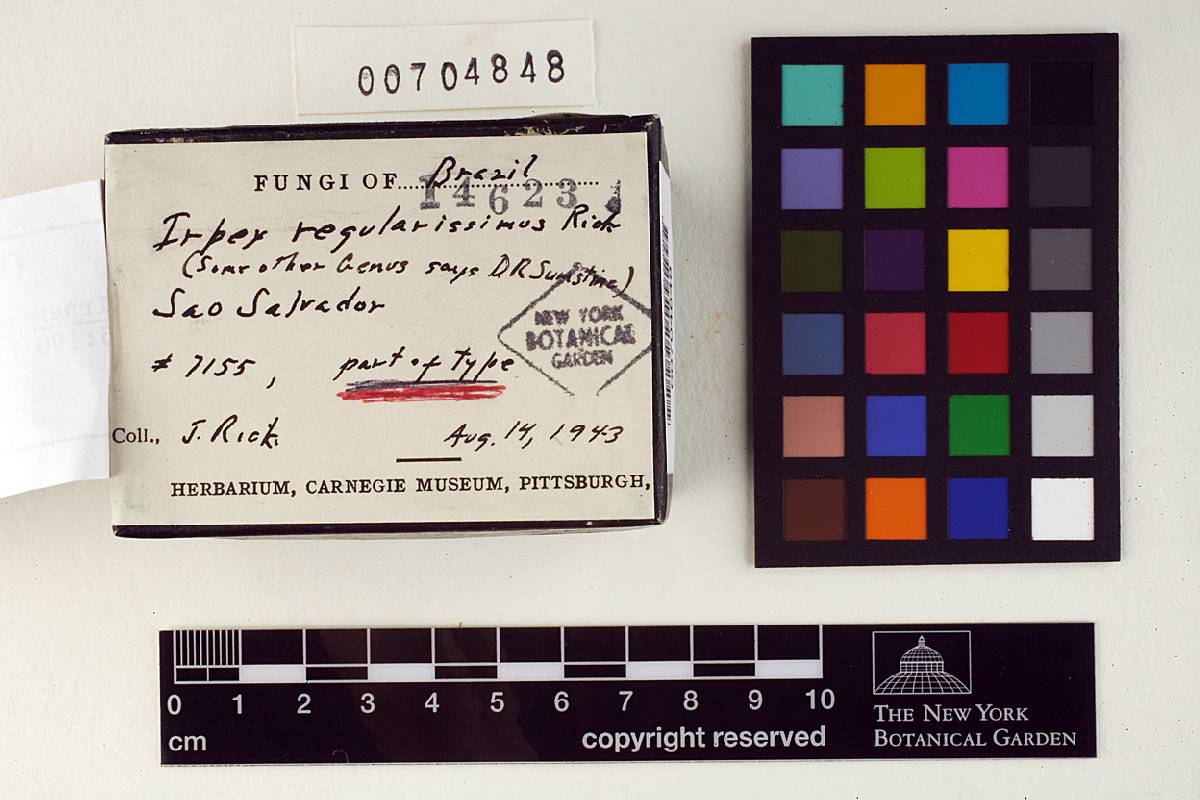 00704848
FUNGI OF Brazil
14623
Irpex regularissimus Rick
(Some other Genus says D R Sumstine)
Sao Salvador
NEW YORK
BOTANICAL
GARDEN
# 7155, part of type
Coll., J. Rick. Aug. 14, 1943
HERBARIUM, CARNEGIE MUSEUM, PITTSBURGH,
0 1 2 3 4 5 6 7 8 9 10
cm
copyright reserved
THE NEW YORK
BOTANICAL GARDEN